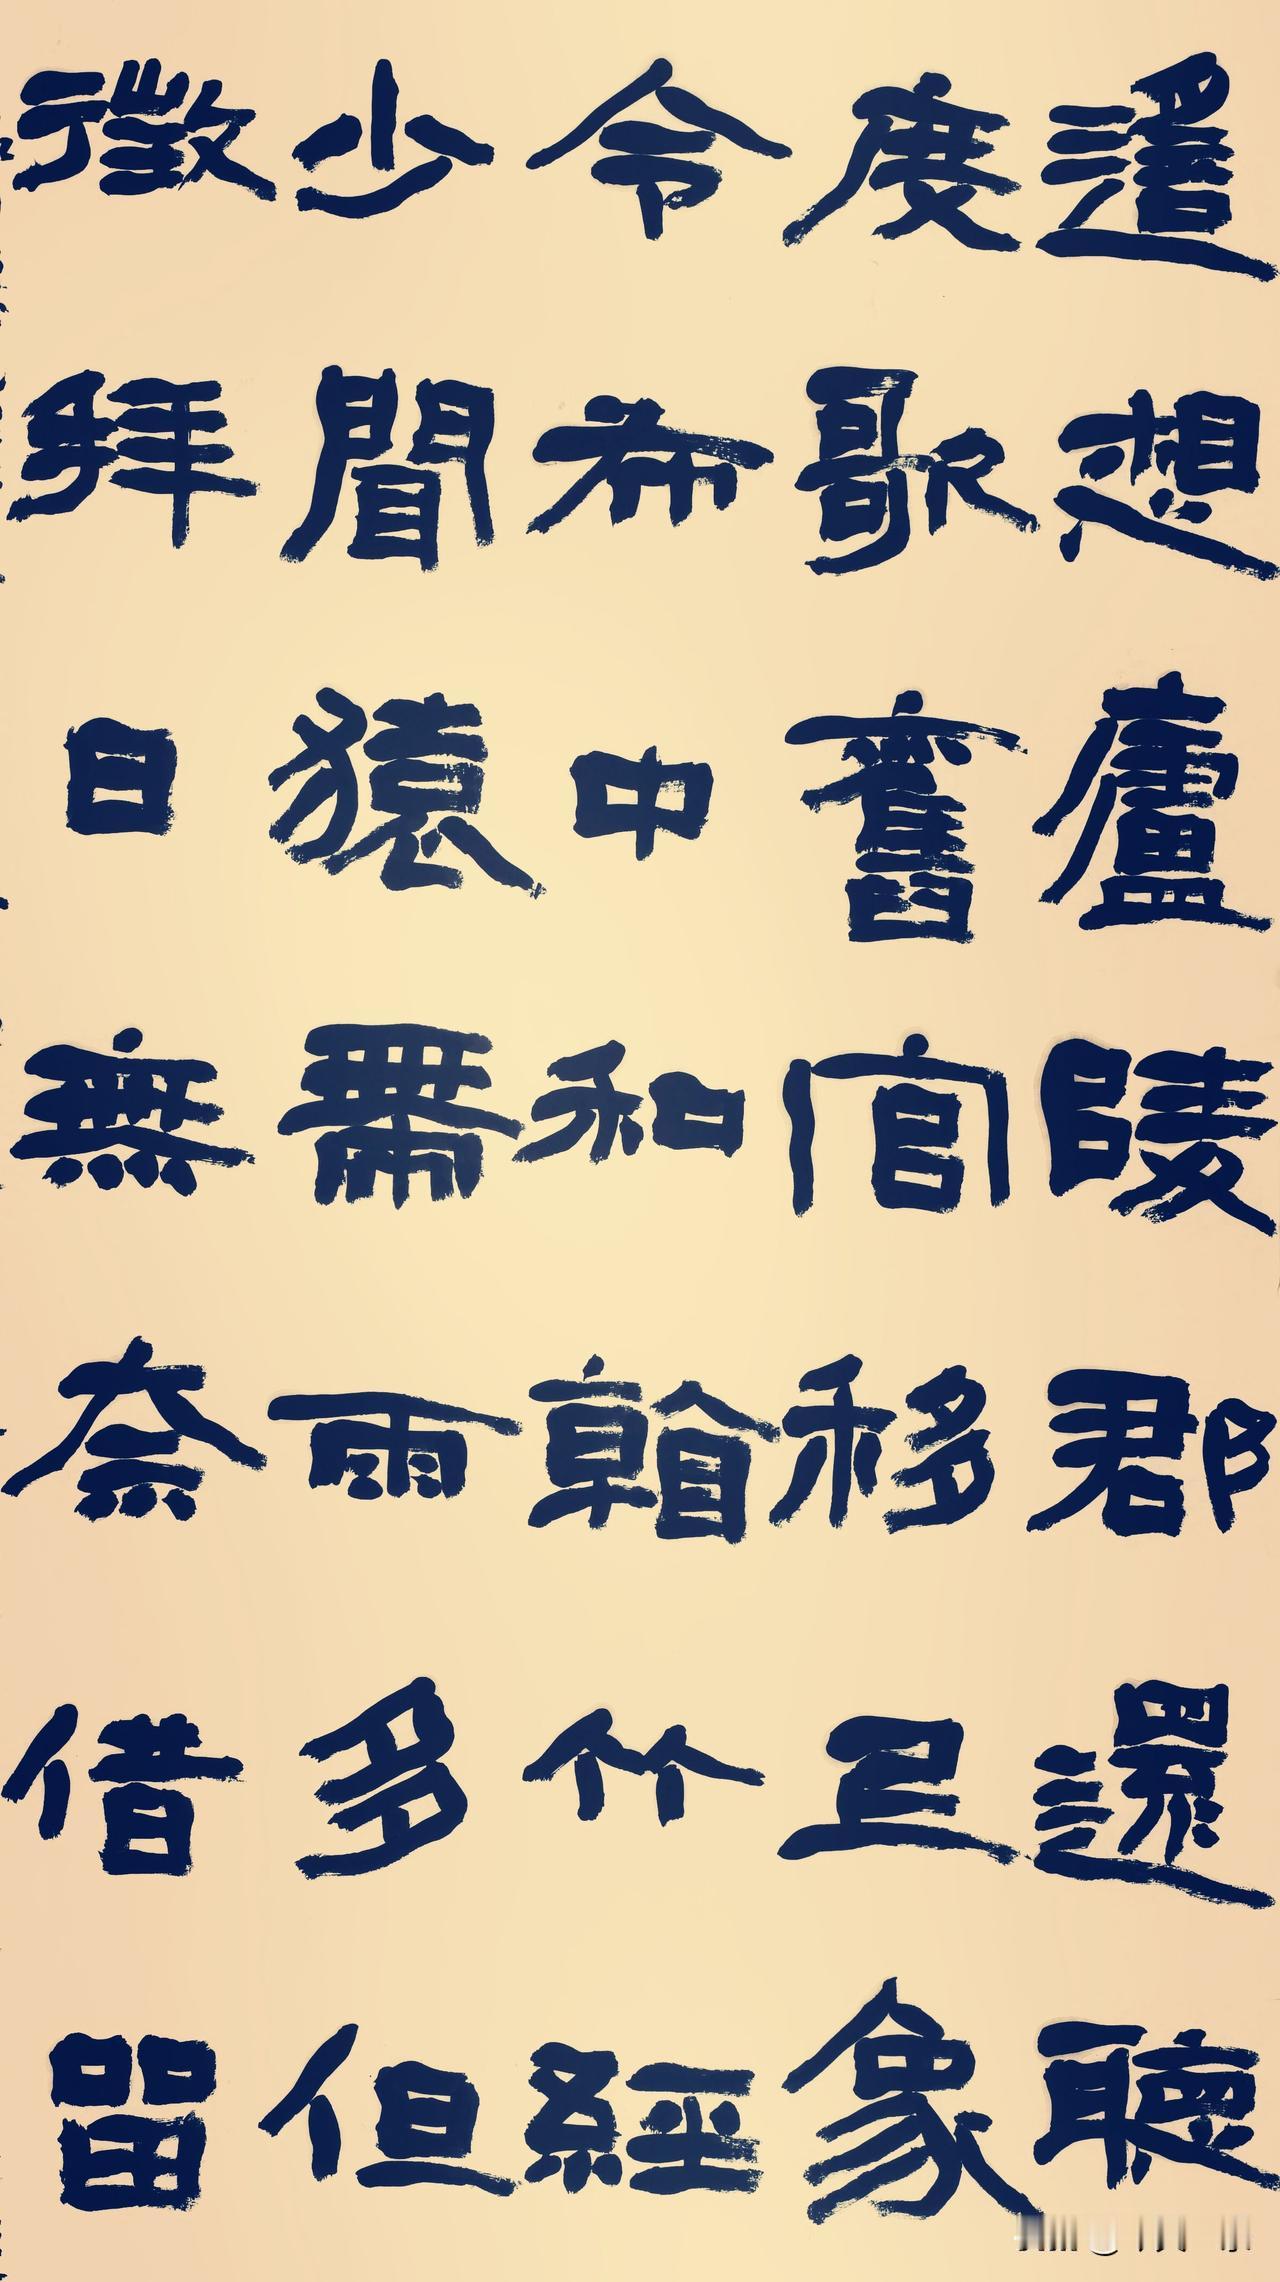 遙想廬陵郡還聽
度歌舊官移象
令布中和看竹經
少聞猿帶雨多但
徵拜日無奈借留